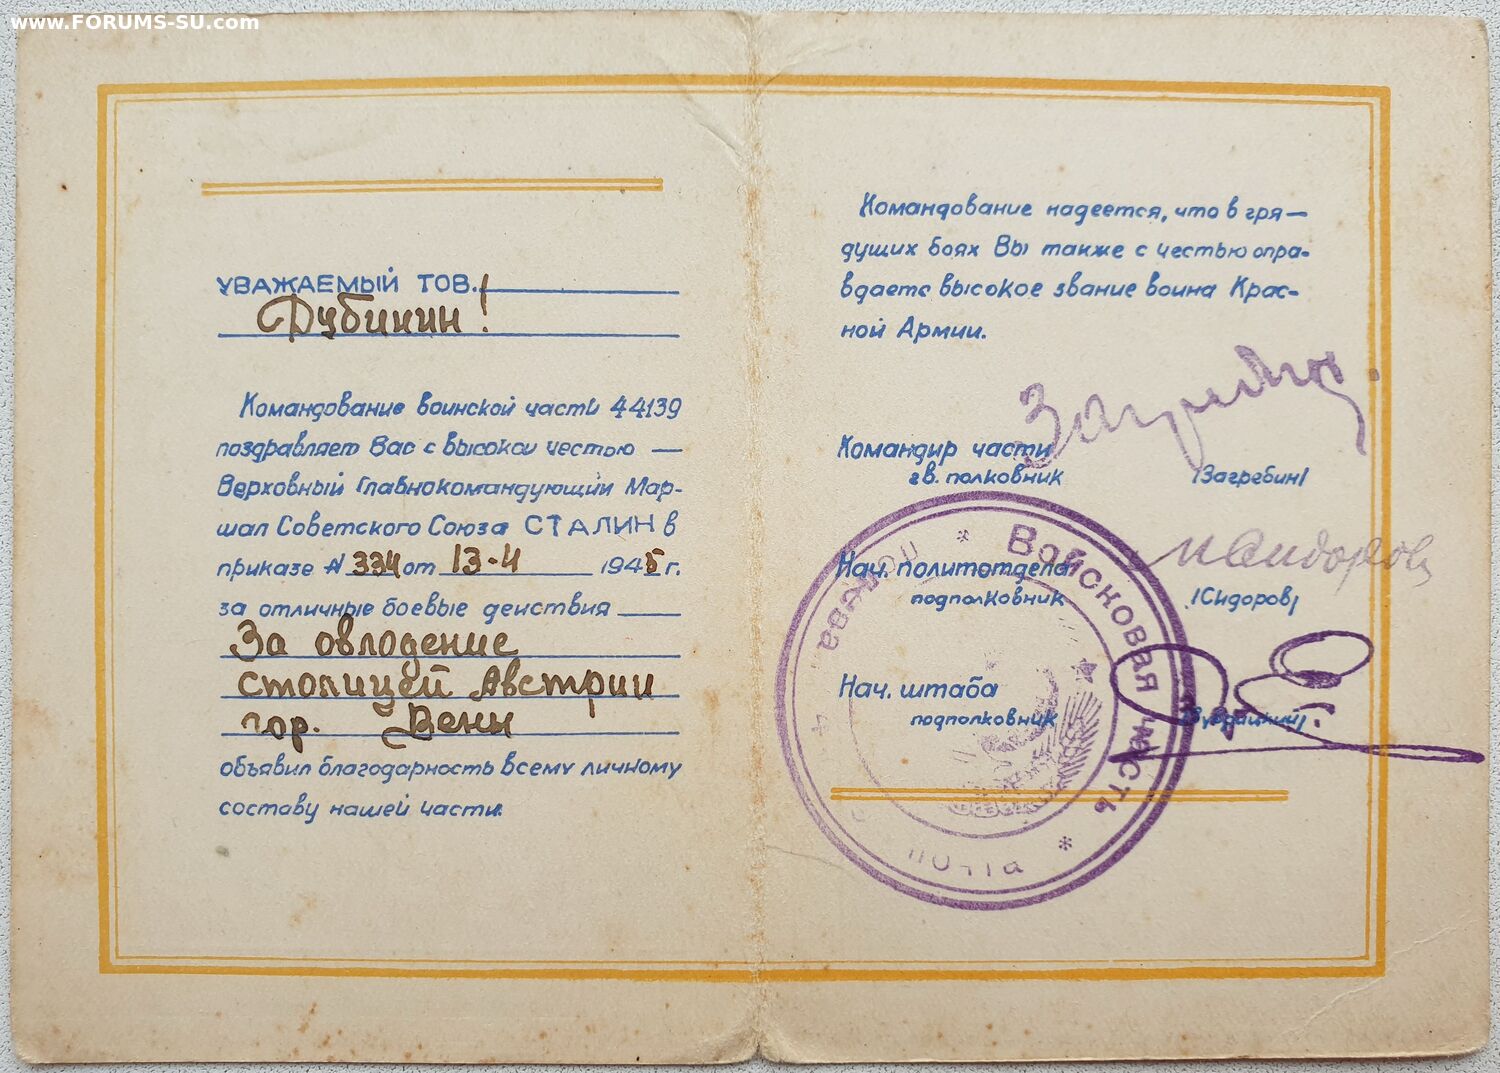 www.FORUMS-SU.com
УВАЖАЕМЫЙ ТОВ.
Дубинин!
Командование воинской части 44139
поздравляет Вас с высокой честью —
Верховный Главнокомандующий Мар-
шал Советского Союза СТАЛИН в
приказе № 334 от 13-4 1945 г.
за отличные боевые действия
За овлодение
столицей Австрии
гор. Вены
объявил благодарность всему личному
составу нашей части.
Командование надеется, что в гря—
дущих боях Вы также с честью опра-
вдаете высокое звание воина Крас-
ной Армии.
Командир части
гв. полковник
/Загребин/
Нач. политотдела
подполковник
/Сидоров/
Нач. штаба
подполковник
Войсковая часть
почта